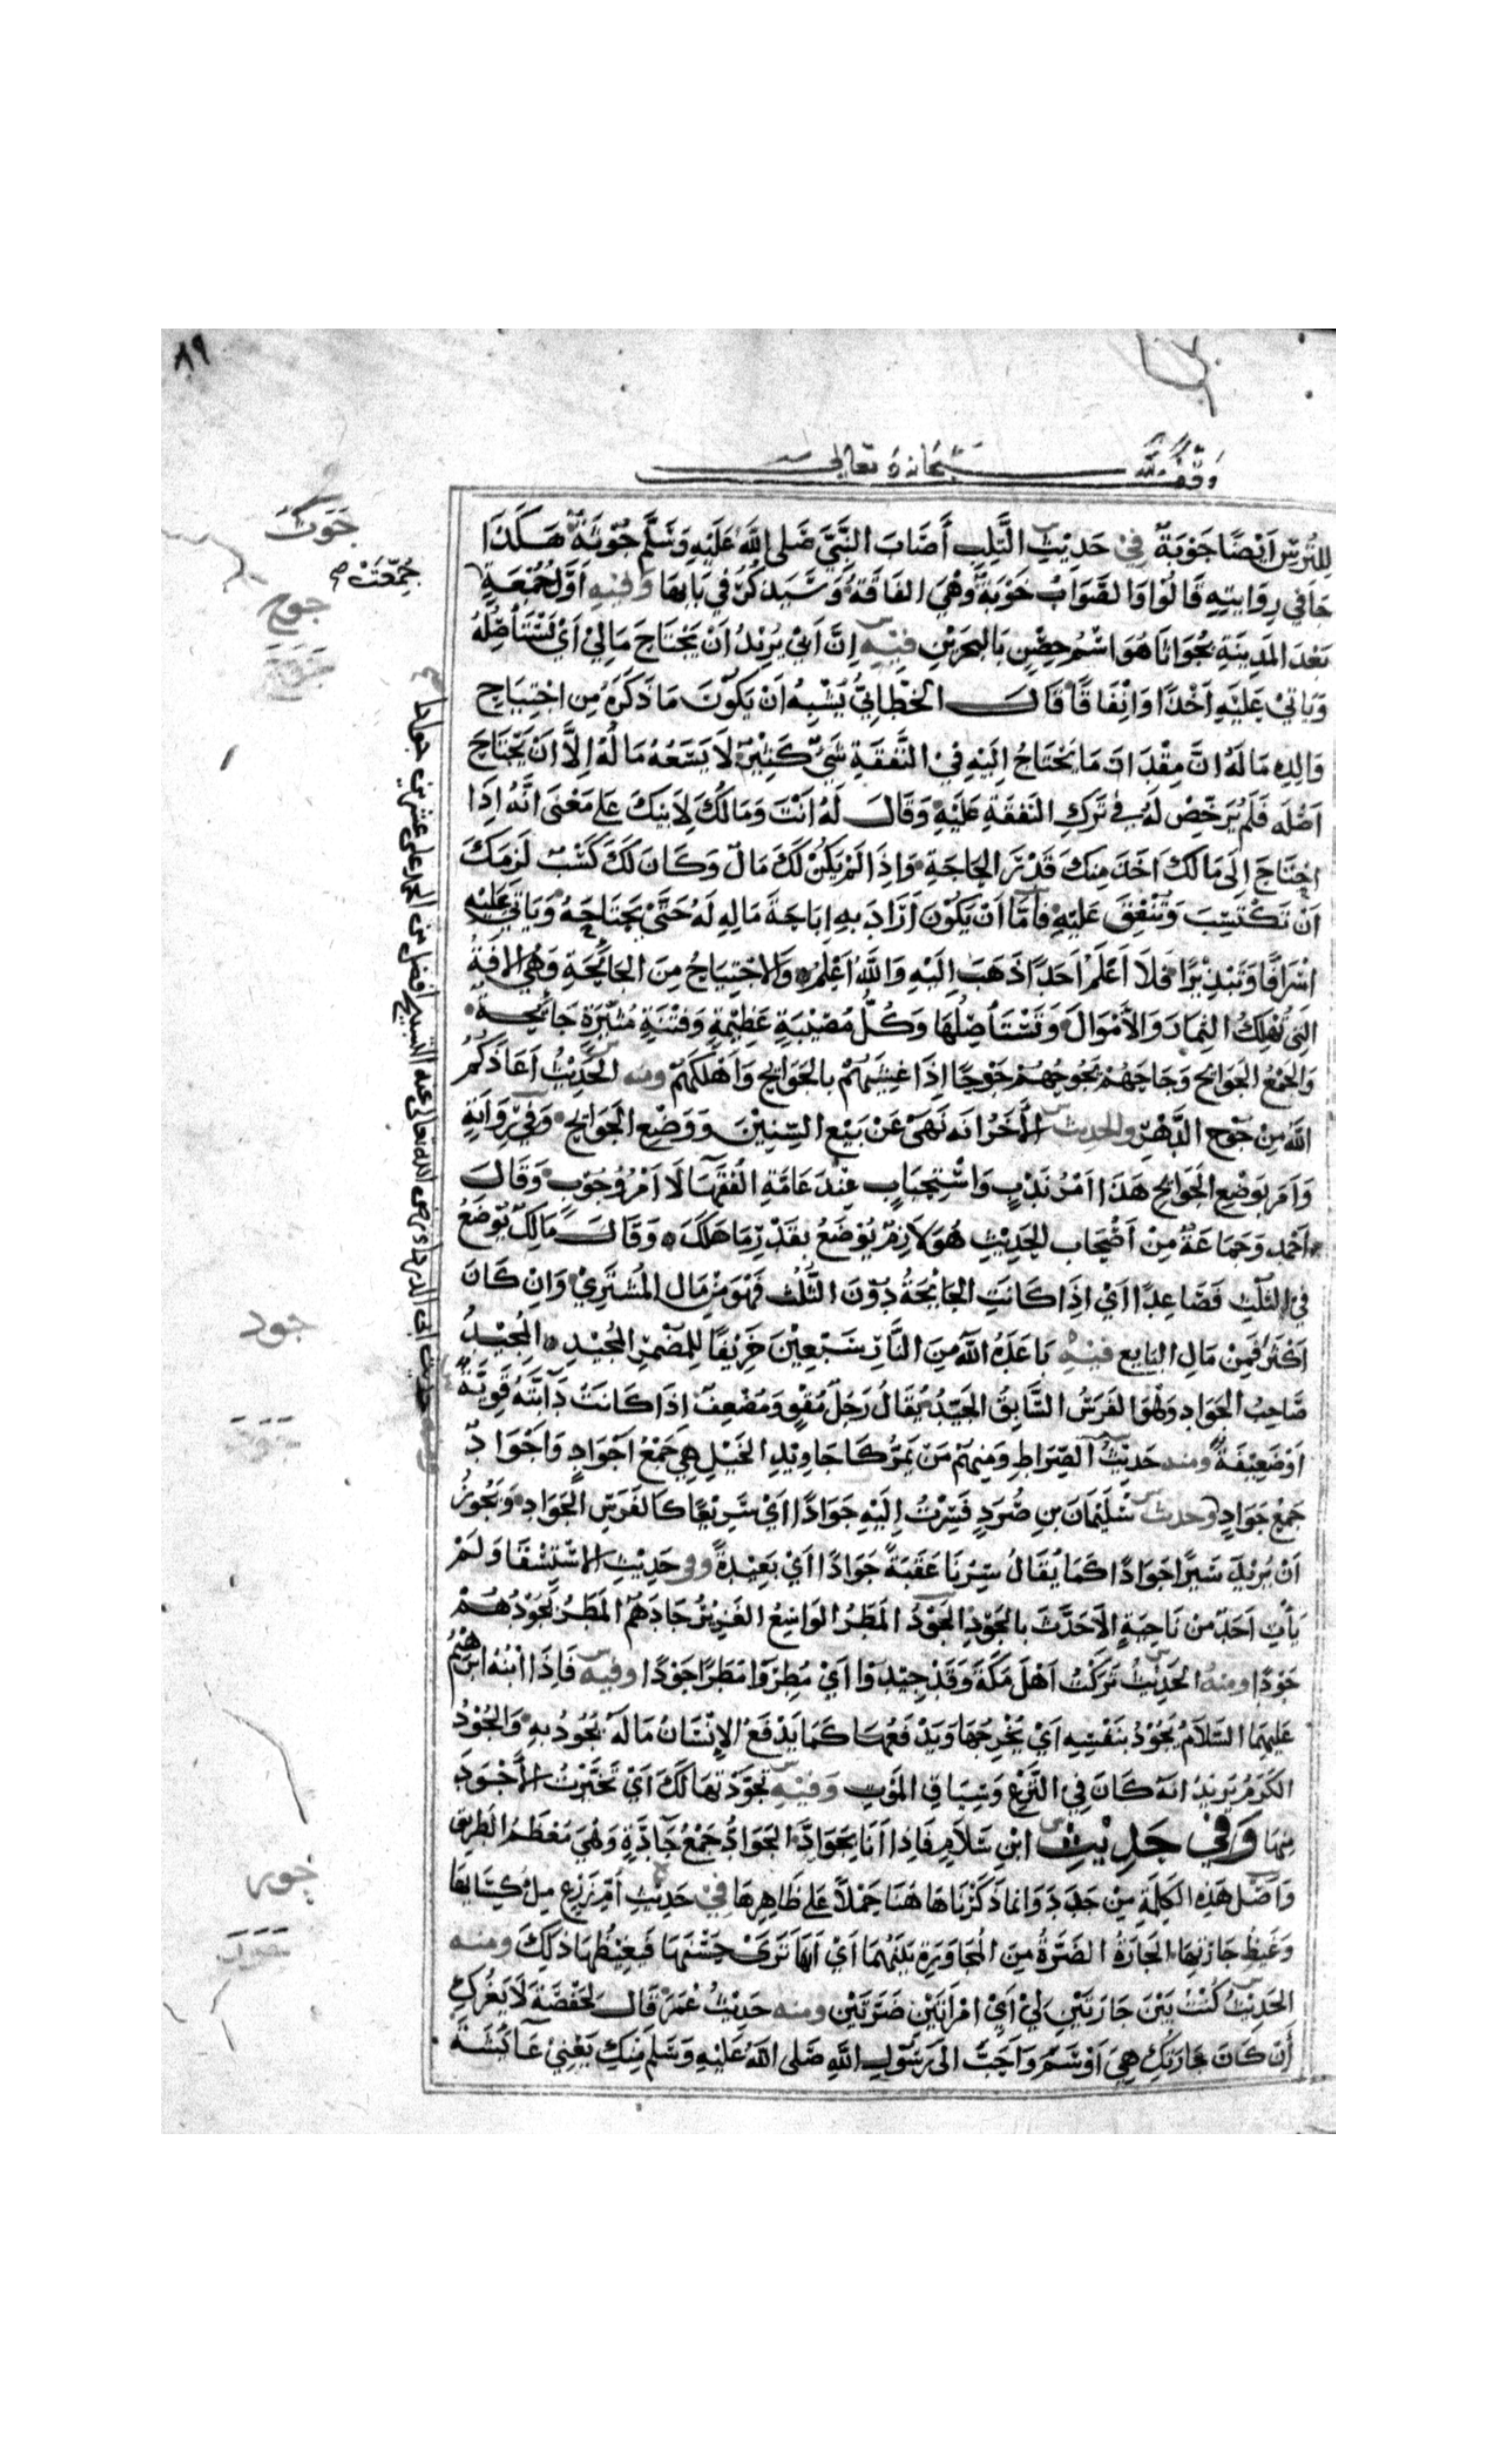 وقف لله سبحانه وتعالى
٨٩
للترس ايضا جوبة في حديث التلب أصاب النبي صلى الله عليه وسلم جوثة هكذا
جا في روايته قالوا والصواب خوبة وهي الفاقة وستذكر في بابها وفيه اول جمعة
جمعت صح
بعد المدينة بجواثا هو اسم حصن بالبحرين فيه إن ابي يريد أن يجتاح مالي أي يستأصله
وياتي عليه اخذا وانفاقا قال الخطابي يشبه ان يكون ما ذكره من اجتياح
والده ماله ان مقدار ما يحتاج إليه في النفقة شيء كثير لا يسعه ماله إلا ان يجتاح
اصله فلم يرخص له في ترك النفقة عليه وقال له انت ومالك لابيك على معنى انه إذا
احتاج إلى مالك اخذ منك قدر الحاجة واذا لم يكن لك مال وكان لك كسب لزمك
ان تكتسب وتنفق عليه فاما ان يكون أراد به إباحة ماله له حتى يجتاحه وياتي عليه
اسرافا وتبذيرا فلا اعلم احدا ذهب اليه والله اعلم والاجتياح من الجائحة وهي الافة
التي تهلك الثمار والأموال وتستأصلها وكل مصيبة عظيمة وفتنة مثيرة جائحة
والجمع الجوايح وجاحهم يجوحهم جوحا إذا غشيهم بالجوايح واهلكهم ومنه الحديث أعاذكم
الله من جوح الدهر والحديث الأخر انه نهى عن بيع السنين ووضع الجوايح وفي رواية
وامر بوضع الجوايح هذا امر ندب واستحباب عند عامة الفقها لا امر وجوب وقال
احمد وجماعة من أصحاب الحديث هو لازم يوضع بقدر ما هلك وقال مالك يوضع
في الثلث فصاعدا اي إذا كانت الجائحة دون الثلث فهو من مال المشتري وان كان
اكثر فمن مال البايع فيه باعده الله من النار سبعين خريفا للمضمر المجيد المجيد
صاحب الجواد وهو الفرس السابق الجيد يقال رجل مقو ومضعف إذا كانت دابته قوية
او ضعيفة ومنه حديث الصراط ومنهم من يمر كاجاويد الخيل هي جمع اجواد واجواد
جمع جواد وحديث سليمان بن صرد فسرت إليه جوادا اي سريعا كالفرس الجواد ويجوز
أن يريد سيرا جوادا كما يقال سرنا عقبة جوادا أي بعيدة وفي حديث الاستسقا ولم
يأت احد من ناحية الا حدث بالجود الجود المطر الواسع الغزير جادهم المطر يجودهم
جودا ومنه الحديث تركت اهل مكة وقد جيدوا اي مطروا مطرا جودا وفيه فاذا ابنه ابرهيم
عليهما السلام يجود بنفسه اي يخرجها ويدفعها كما يدفع الإنسان ماله يجود به والجود
الكرم يريد انه كان في النزع وسياق الموت وفيه تجودتها لك اي تخيرت الأجود
منها وفي حديث ابن سلام فاذا أنا بجواد الجواد جمع جادة وهي معظم الطريق
واصل هذه الكلمة من جدد وانما ذكرناها هنا حملا على ظاهرها في حديث أم زرع مل كسايها
وغيظ جارتها الجارة الضرة من المجاورة بينهما اي انها ترى حسنها فيغيظها ذلك ومنه
الحديث كنت بين جارتين لي اي امراتين ضرتين ومنه حديث عمر قال لحفصة لا يغرك
أن كان جارتك هي اوسم واحب الى رسول الله صلى الله عليه وسلم منك يعني عائشة
جوث
جوح
جود
جور
حديث ابي الدرداء رضي الله تعالى عنه التسبيح افضل من الحمل على عشرين جوادا